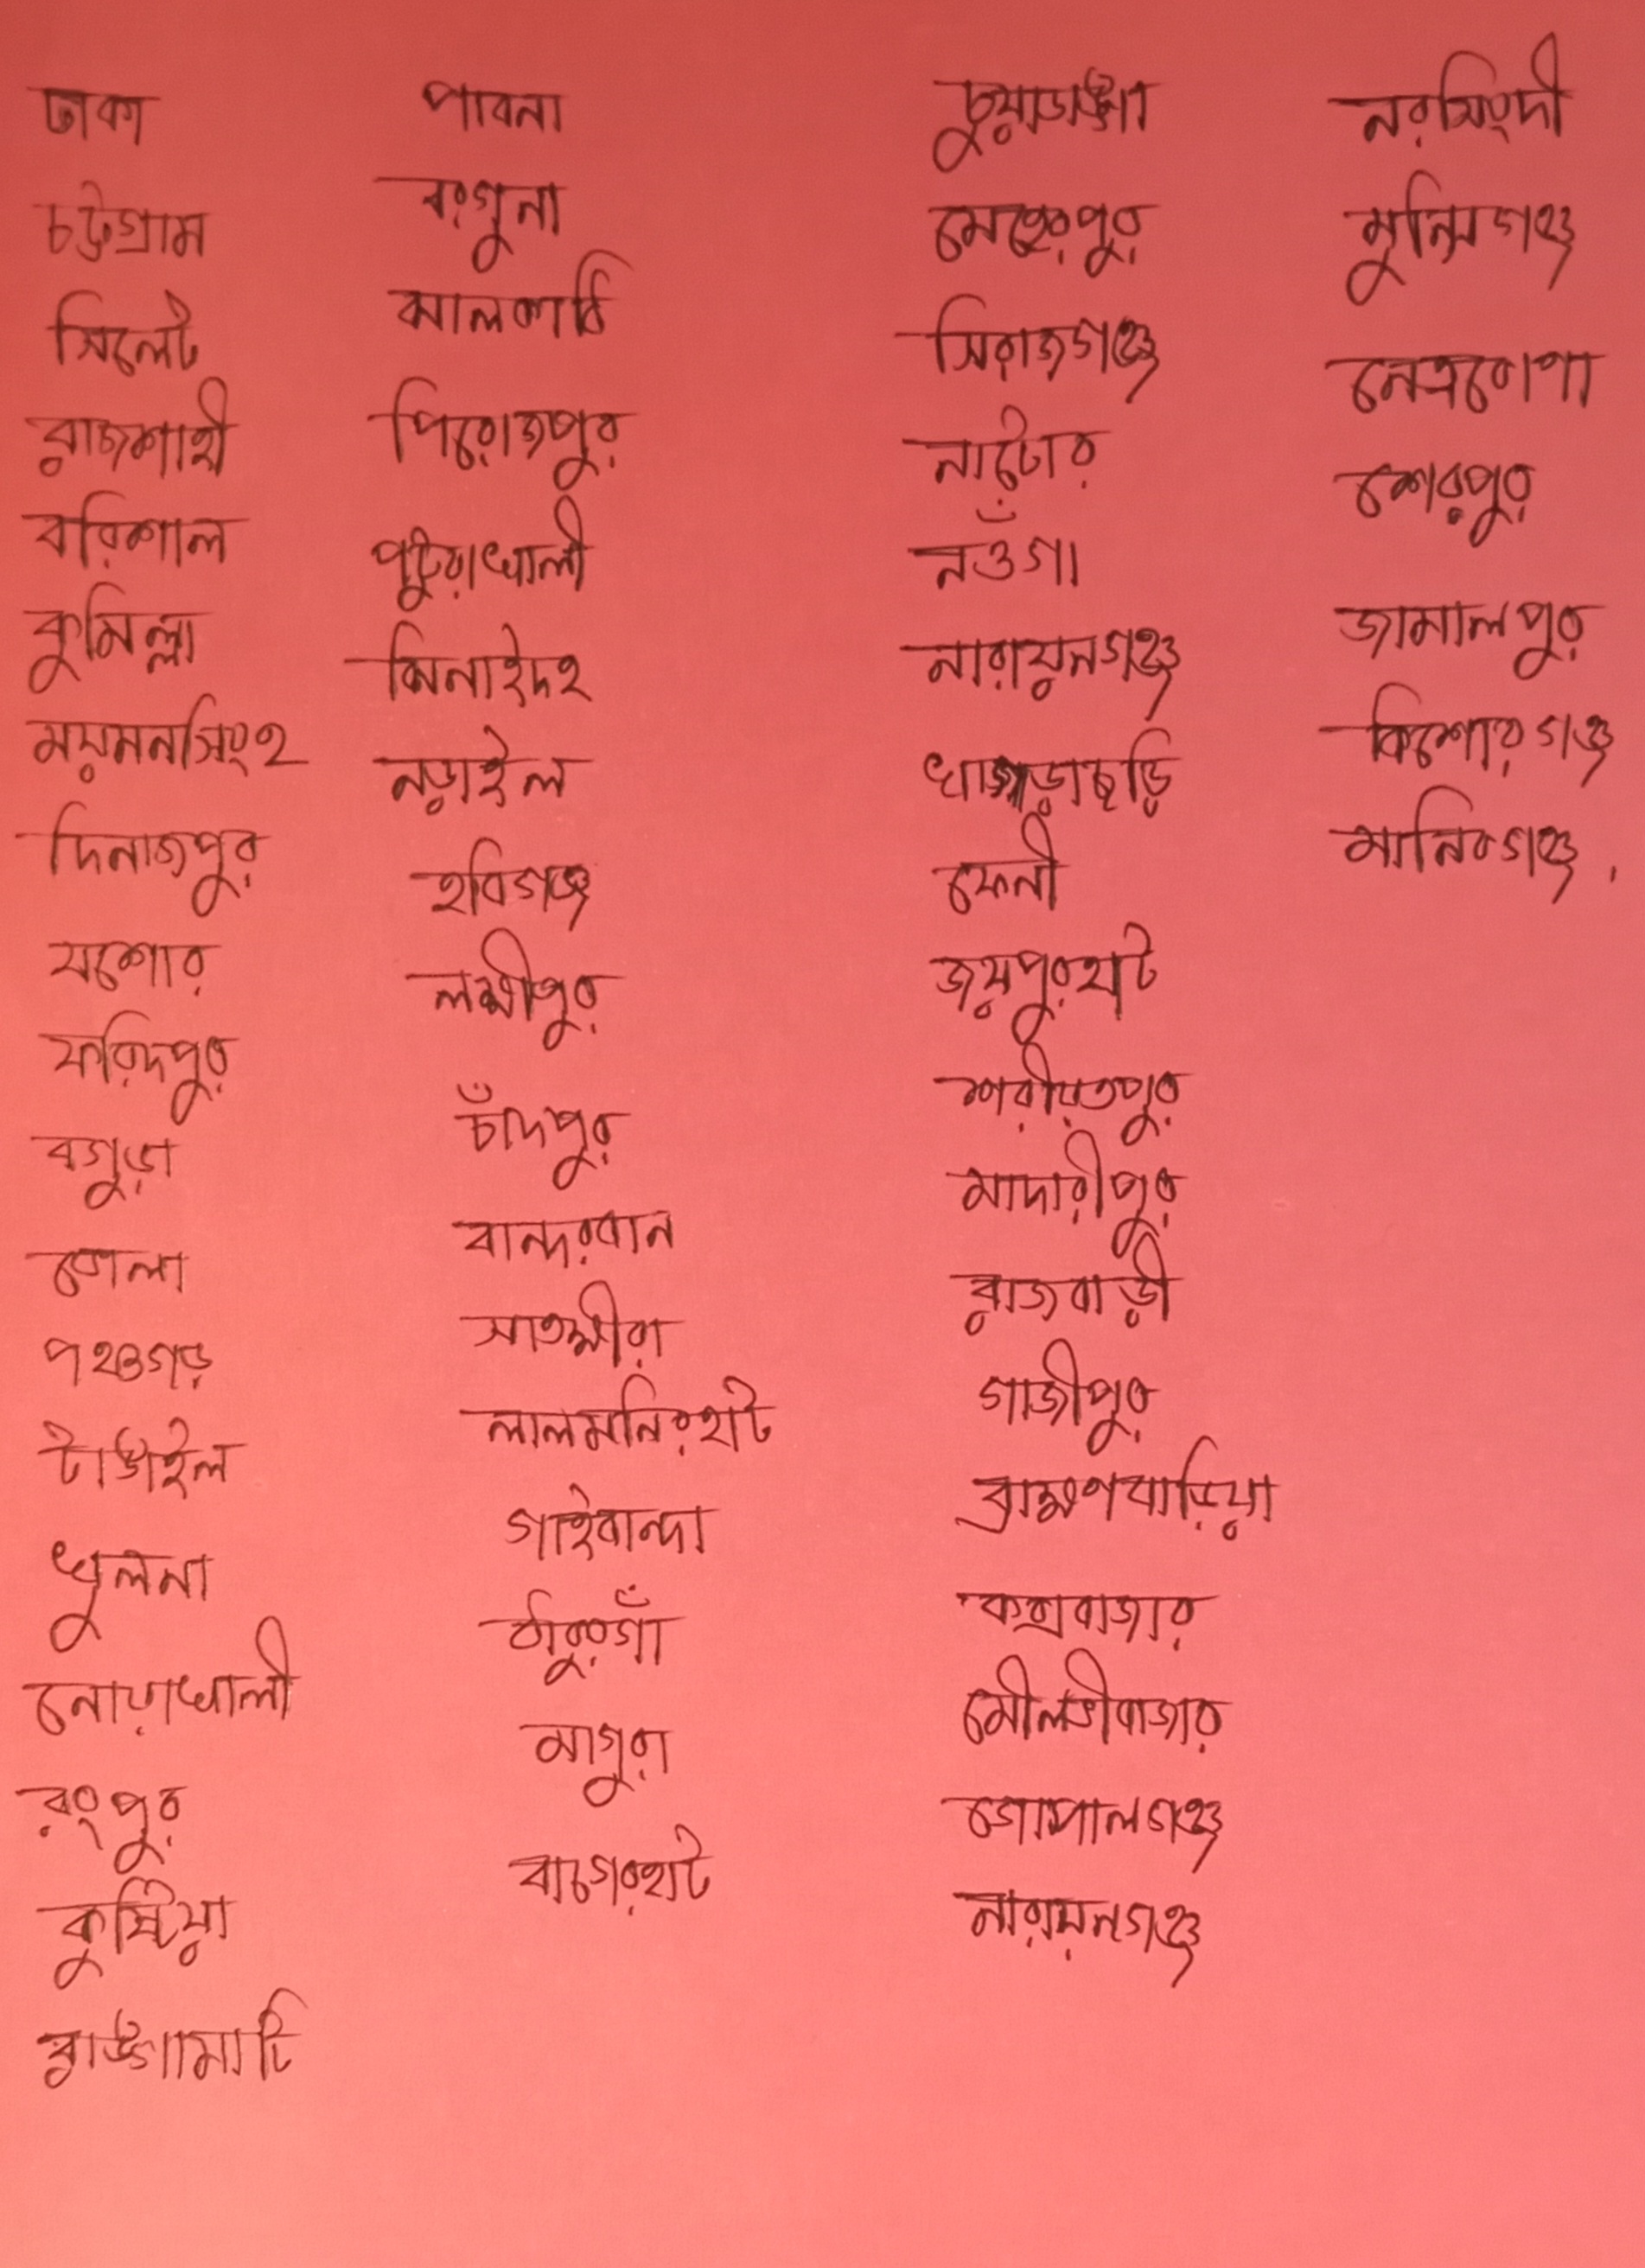 ঢাকা
চট্টগ্রাম
সিলেট
রাজশাহী
বরিশাল
কুমিল্লা
ময়মনসিংহ
দিনাজপুর
যশোর
ফরিদপুর
বগুড়া
ভোলা
পঞ্চগড়
টাঙাইল
খুলনা
নোয়াখালী
রংপুর
কুষ্টিয়া
রাঙ্গামাটি
পাবনা
বরগুনা
ঝালকাঠি
পিরোজপুর
পটুয়াখালী
ঝিনাইদহ
নড়াইল
হবিগঞ্জ
লক্ষ্মীপুর
চাঁদপুর
বান্দরবান
সাতক্ষীরা
লালমনিরহাট
গাইবান্দা
ঠাকুরগাঁ
মাগুরা
বাগেরহাট
চুয়াডাঙ্গা
মেহেরপুর
সিরাজগঞ্জ
নাটোর
নওঁগা
নারায়নগঞ্জ
খাগড়াছড়ি
ফেনী
জয়পুরহাট
শরীয়তপুর
মাদারীপুর
রাজবাড়ী
গাজীপুর
ব্রাহ্মণবাড়িয়া
কক্সবাজার
মৌলভীবাজার
গোপালগঞ্জ
নারায়নগঞ্জ
নরসিংদী
মুন্সিগঞ্জ
নেত্রকোণা
শেরপুর
জামালপুর
কিশোরগঞ্জ
মানিকগঞ্জ,